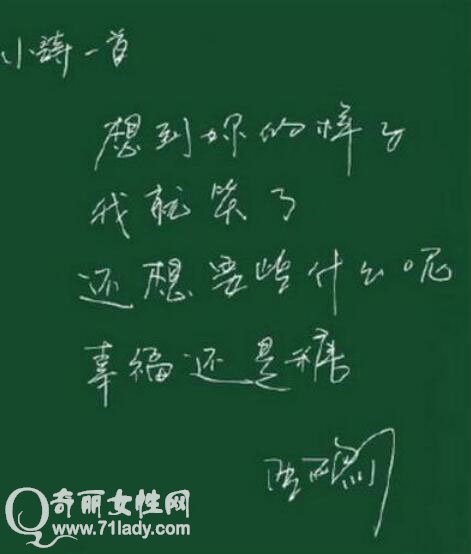 小詩一首
想到妳的样子
我就笑了
还想要些什么呢
幸福还是糖
奇丽女性网
www.71lady.com